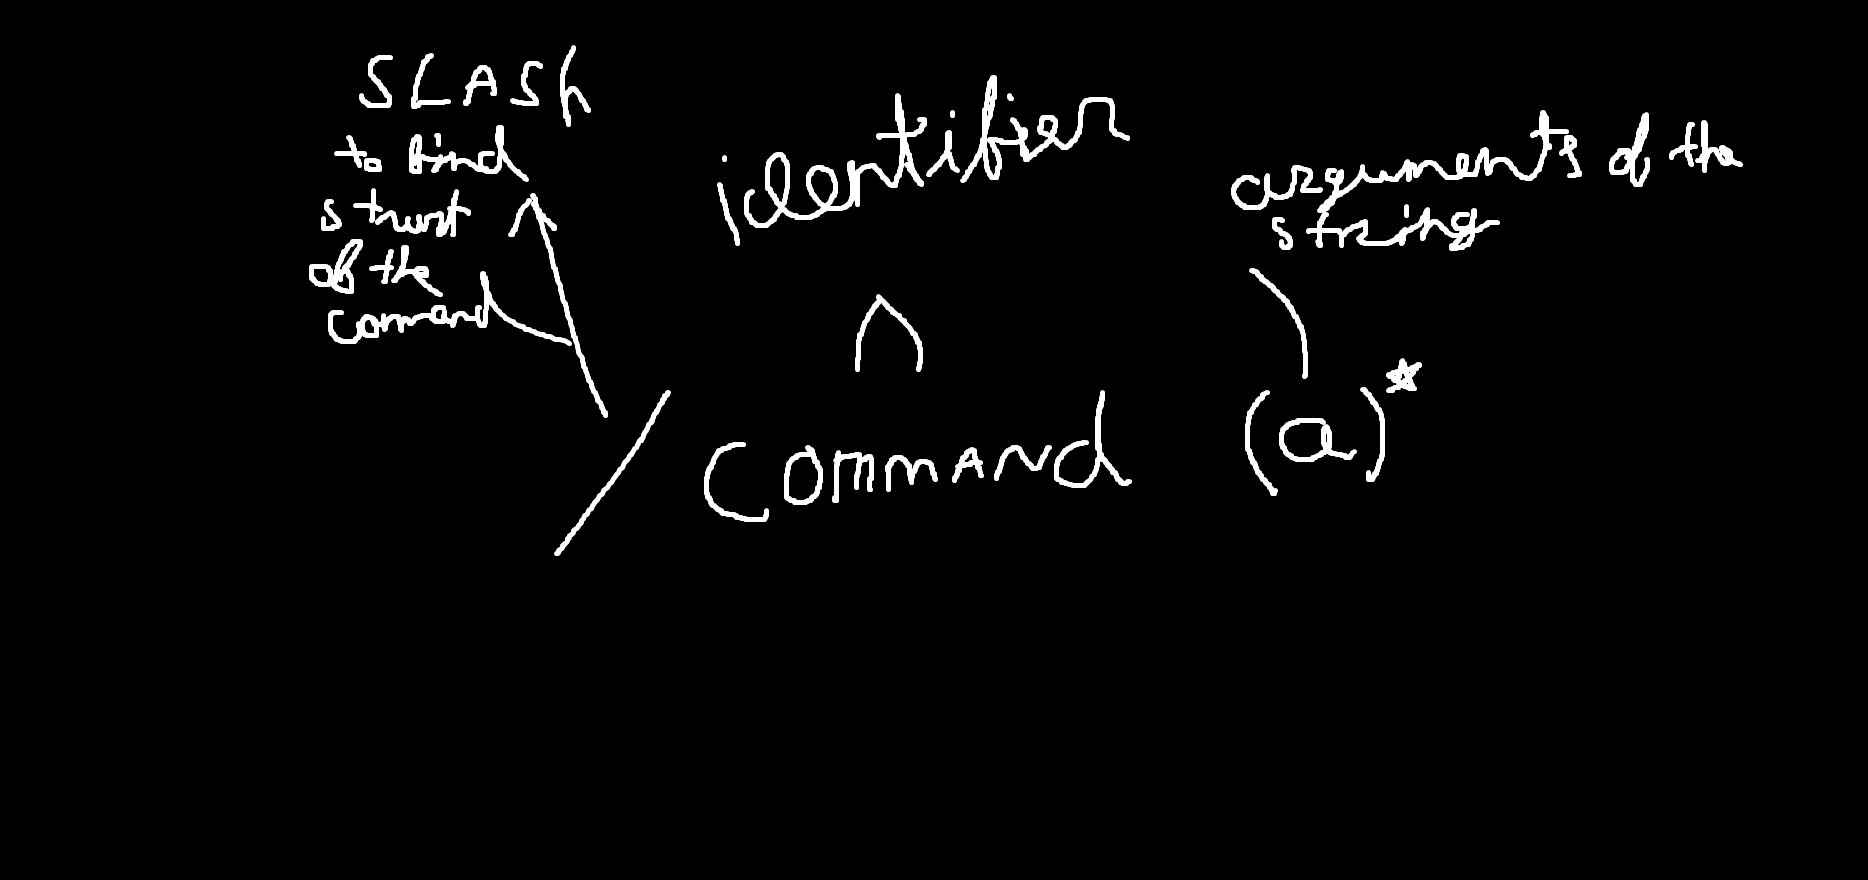 SLASh
to bind
strurt
of the
command
identifier
arguments of the
string
/ COMMANd (a)*